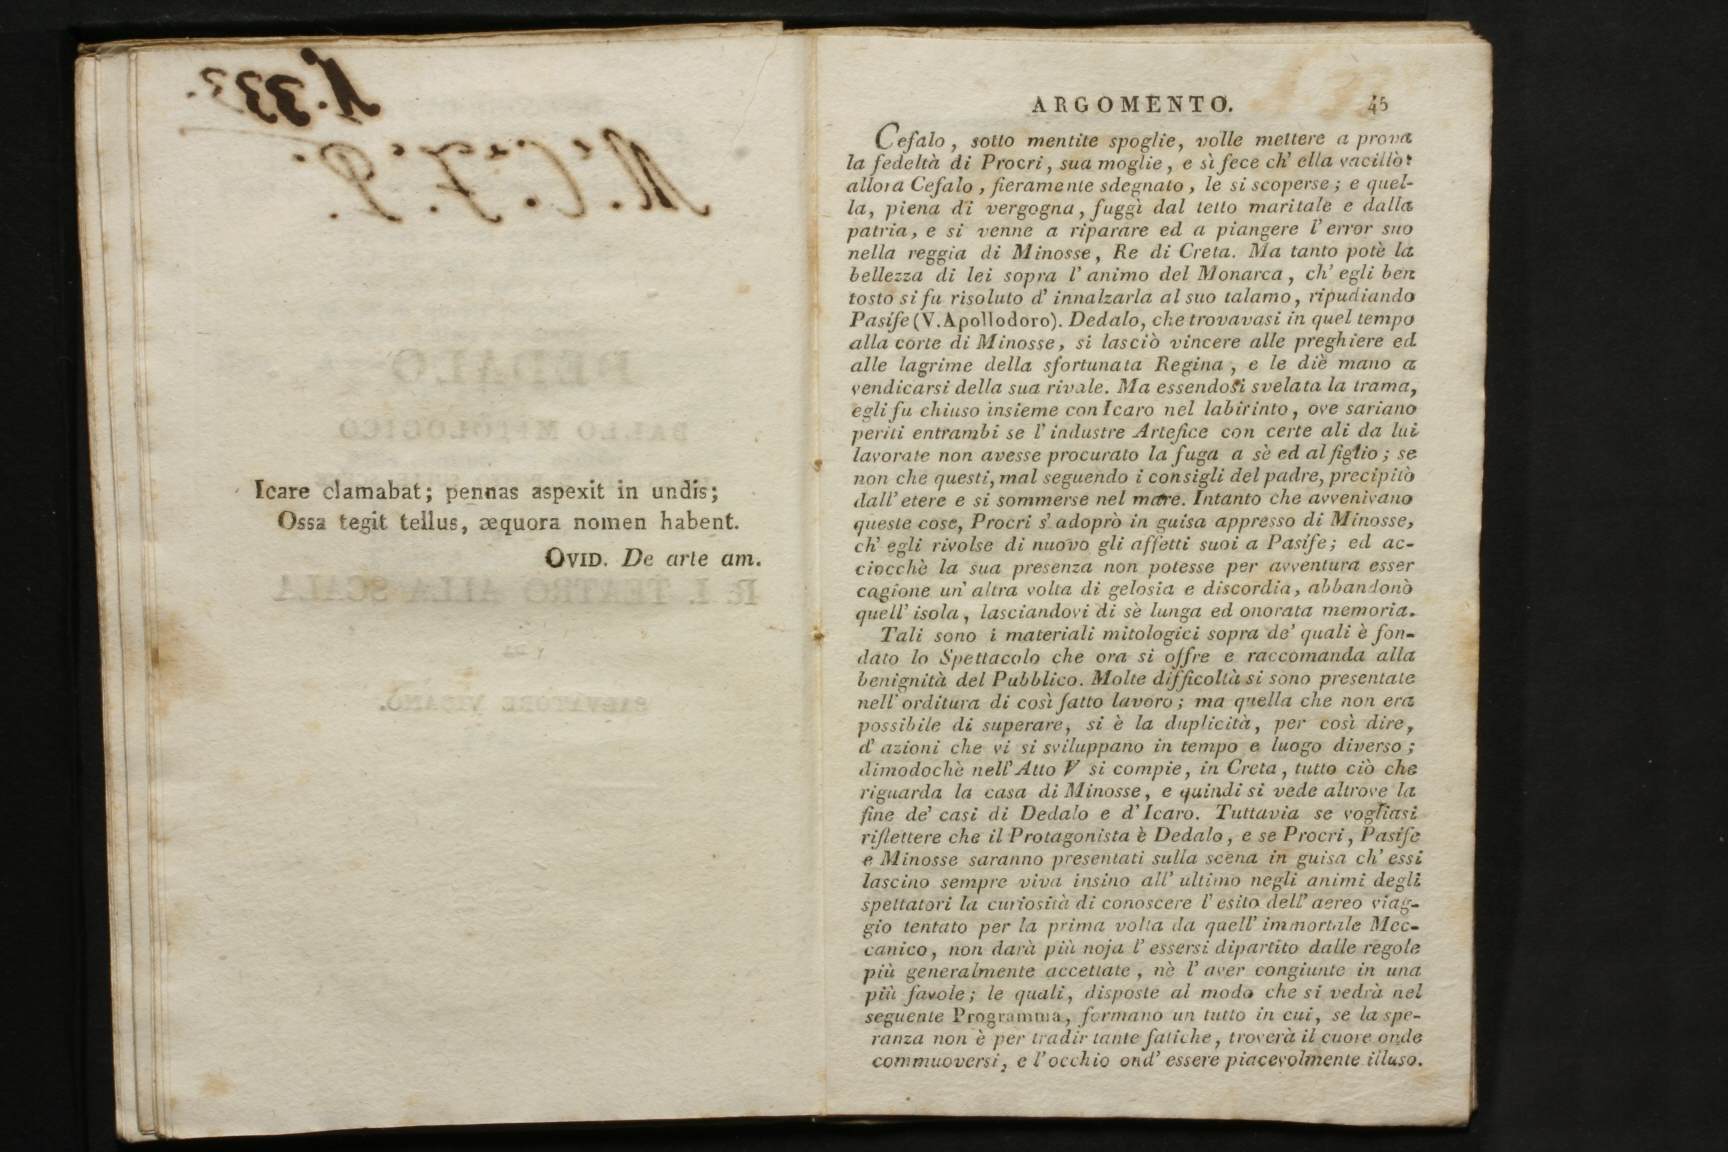 N. 333.
M. C. F. P.
Icare clamabat; pennas aspexit in undis;
Ossa tegit tellus, æquora nomen habent.
OVID. De arte am.
DEDALO
BALLO MITOLOGICO
R. I. TEATRO ALLA SCALA
DA
SALVATORE VIGANÒ.
ARGOMENTO. 45
Cefalo, sotto mentite spoglie, volle mettere a prova
la fedeltà di Procri, sua moglie, e sì fece ch' ella vacillò:
allora Cefalo, fieramente sdegnato, le si scoperse; e quel-
la, piena di vergogna, fuggì dal tetto maritale e dalla
patria, e si venne a riparare ed a piangere l' error suo
nella reggia di Minosse, Re di Creta. Ma tanto potè la
bellezza di lei sopra l' animo del Monarca, ch' egli ben
tosto si fu risoluto d' innalzarla al suo talamo, ripudiando
Pasife (V. Apollodoro). Dedalo, che trovavasi in quel tempo
alla corte di Minosse, si lasciò vincere alle preghiere ed
alle lagrime della sfortunata Regina, e le diè mano a
vendicarsi della sua rivale. Ma essendosi svelata la trama,
egli fu chiuso insieme con Icaro nel labirinto, ove sariano
periti entrambi se l' industre Artefice con certe ali da lui
lavorate non avesse procurato la fuga a sè ed al figlio; se
non che questi, mal seguendo i consigli del padre, precipitò
dall' etere e si sommerse nel mare. Intanto che avvenivano
queste cose, Procri s' adoprò in guisa appresso di Minosse,
ch' egli rivolse di nuovo gli affetti suoi a Pasife; ed ac-
ciocchè la sua presenza non potesse per avventura esser
cagione un' altra volta di gelosia e discordia, abbandonò
quell' isola, lasciandovi di sè lunga ed onorata memoria.
Tali sono i materiali mitologici sopra de' quali è fon-
dato lo Spettacolo che ora si offre e raccomanda alla
benignità del Pubblico. Molte difficoltà si sono presentate
nell' orditura di così fatto lavoro; ma quella che non era
possibile di superare, si è la duplicità, per così dire,
d' azioni che vi si sviluppano in tempo e luogo diverso;
dimodochè nell' Atto V si compie, in Creta, tutto ciò che
riguarda la casa di Minosse, e quindi si vede altrove la
fine de' casi di Dedalo e d' Icaro. Tuttavia se vogliasi
riflettere che il Protagonista è Dedalo, e se Procri, Pasife
e Minosse saranno presentati sulla scena in guisa ch' essi
lascino sempre viva insino all' ultimo negli animi degli
spettatori la curiosità di conoscere l' esito dell' aereo viag-
gio tentato per la prima volta da quell' immortale Mec-
canico, non darà più noja l' essersi dipartito dalle regole
più generalmente accettate, nè l' aver congiunte in una
più favole; le quali, disposte al modo che si vedrà nel
seguente Programma, formano un tutto in cui, se la spe-
ranza non è per tradir tante fatiche, troverà il cuore onde
commuoversi, e l' occhio ond' essere piacevolmente illuso.